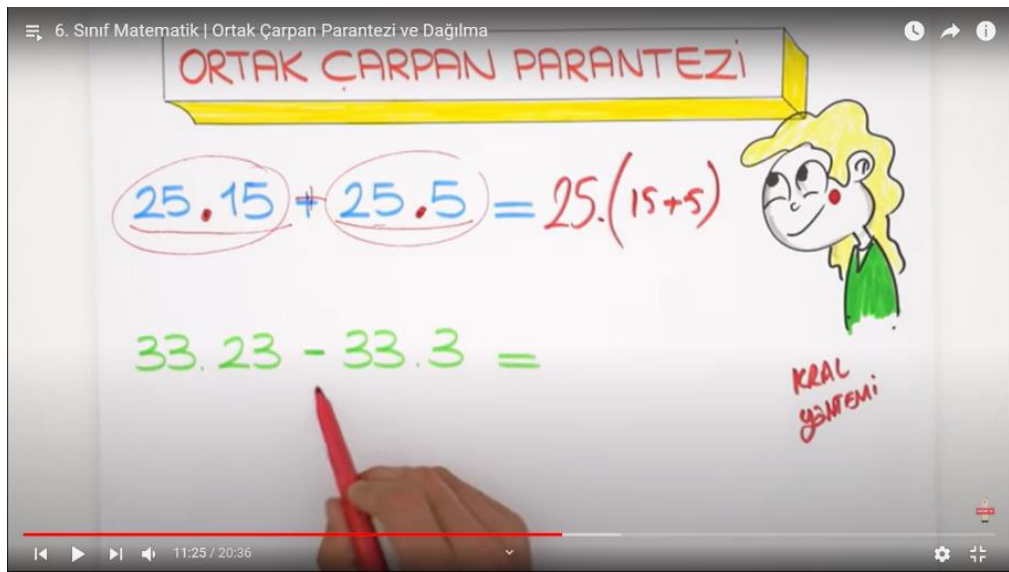 6. Sınıf Matematik | Ortak Çarpan Parantezi ve Dağılma
ORTAK ÇARPAN PARANTEZİ
25.15 + 25.5 = 25.(15+5)
33.23 - 33.3 =
KRAL
YÖNTEMİ
11:25 / 20:36